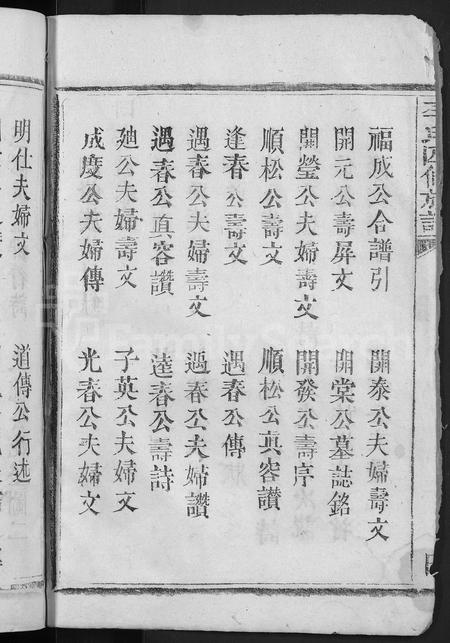 福成公合譜引　開泰公夫婦壽文
開元公壽屏文　開棠公墓誌銘
開瑩公夫婦壽文　開發公壽序
順松公壽文　順松公真容讚
逢春公壽文　遇春公傳
遇春公夫婦壽文　遇春公夫婦讚
遇春公真容讚　逵春公壽詩
廸公夫婦壽文　子英公夫婦文
成度公夫婦傳　光春公夫婦文
明仕夫婦文　道傳公行述